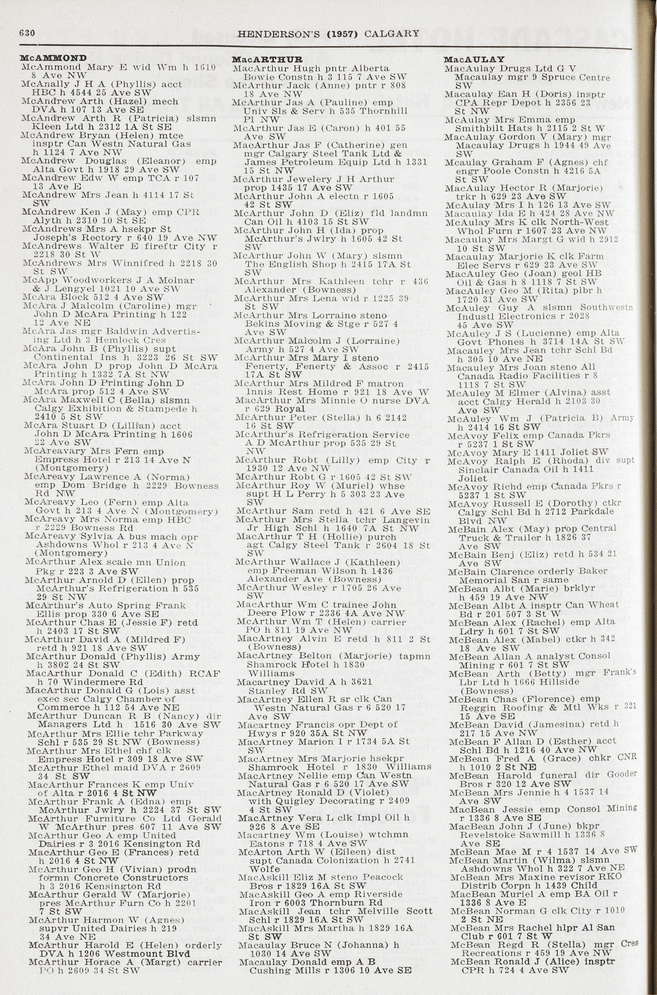 630
HENDERSON'S (1957) CALGARY
McAMMOND
McAmmond Mary E wid Wm h 1610
8 Ave NW
McAnally J H A (Phyllis) acct
HBC h 4544 25 Ave SW
McAndrew Arth (Hazel) mech
DVA h 107 13 Ave SE
McAndrew Arth R (Patricia) slsmn
Kleen Ltd h 2312 1A St SE
McAndrew Bryan (Helen) mtce
insptr Can Westn Natural Gas
h 1124 7 Ave NW
McAndrew Douglas (Eleanor) emp
Alta Govt h 1918 29 Ave SW
McAndrew Edw W emp TCA r 107
13 Ave E
McAndrew Mrs Jean h 4114 17 St
SW
McAndrew Ken J (May) emp CPR
Alyth h 2310 10 St SE
McAndrews Mrs A hsekpr St
Joseph's Rectory r 640 19 Ave NW
McAndrews Walter E fireftr City r
2218 30 St W
McAndrews Mrs Winnifred h 2218 30
St SW
McApp Woodworkers J A Molnar
& J Lengyel 1021 10 Ave SW
McAra Block 512 4 Ave SW
McAra J Malcolm (Caroline) mgr
John D McAra Printing h 122
12 Ave NE
McAra Jas mgr Baldwin Advertis-
ing Ltd h 3 Hemlock Cres
McAra John B (Phyllis) supt
Continental Ins h 3223 26 St SW
McAra John D prop John D McAra
Printing h 1332 7A St NW
McAra John D Printing John D
McAra prop 512 4 Ave SW
McAra Maxwell C (Bella) slsmn
Calgy Exhibition & Stampede h
2410 5 St SW
McAra Stuart D (Lillian) acct
John D McAra Printing h 1606
22 Ave SW
McAreavary Mrs Fern emp
Empress Hotel r 213 14 Ave N
(Montgomery)
McAreavy Lawrence A (Norma)
emp Dom Bridge h 2229 Bowness
Rd NW
McAreavy Leo (Fern) emp Alta
Govt h 213 4 Ave N (Montgomery)
McAreavy Mrs Norma emp HBC
r 2229 Bowness Rd
McAreavy Sylvia A bus mach opr
Ashdowns Whol r 213 4 Ave N
(Montgomery)
McArthur Alex scale mn Union
Pkg r 223 3 Ave SW
McArthur Arnold D (Ellen) prop
McArthur's Refrigeration h 535
29 St NW
McArthur's Auto Spring Frank
Ellis prop 330 6 Ave SE
McArthur Chas E (Jessie F) retd
h 2403 17 St SW
McArthur David A (Mildred F)
retd h 921 18 Ave SW
McArthur Donald (Phyllis) Army
h 3802 24 St SW
MacArthur Donald C (Edith) RCAF
h 70 Windermere Rd
MacArthur Donald G (Lois) asst
exec sec Calgy Chamber of
Commerce h 112 54 Ave NE
McArthur Duncan R B (Nancy) dir
Managers Ltd h 1516 30 Ave SW
McArthur Mrs Ellie tchr Parkway
Schl r 535 29 St NW (Bowness)
McArthur Mrs Ethel chf clk
Empress Hotel r 309 18 Ave SW
McArthur Ethel maid DVA r 2609
34 St SW
MacArthur Frances K emp Univ
of Alta r 2016 4 St NW
MacArthur Frank A (Edna) emp
McArthur Jwlry h 2224 37 St SW
McArthur Furniture Co Ltd Gerald
W McArthur pres 607 11 Ave SW
McArthur Geo A emp United
Dairies r 3 2016 Kensington Rd
MacArthur Geo E (Frances) retd
h 2016 4 St NW
McArthur Geo H (Vivian) prodn
formn Concrete Constructors
h 3 2016 Kensington Rd
McArthur Gerald W (Marjorie)
pres McArthur Furn Co h 2201
7 St SW
McArthur Harmon W (Agnes)
supvr United Dairies h 219
34 Ave NE
McArthur Harold E (Helen) orderly
DVA h 1206 Westmount Blvd
McArthur Horace A (Margt) carrier
PO h 2609 34 St SW
MacARTHUR
MacArthur Hugh pntr Alberta
Bowie Constn h 3 115 7 Ave SW
McArthur Jack (Anne) pntr r 808
18 Ave NW
McArthur Jas A (Pauline) emp
Univ Sls & Serv h 535 Thornhill
Pl NW
McArthur Jas E (Caron) h 401 55
Ave SW
McArthur Jas F (Catherine) gen
mgr Calgary Steel Tank Ltd &
James Petroleum Equip Ltd h 1331
15 St NW
McArthur Jewelery J H Arthur
prop 1435 17 Ave SW
McArthur John A electn r 1605
42 St SW
McArthur John D (Eliz) fld landmn
Can Oil h 4103 15 St SW
McArthur John H (Ida) prop
McArthur's Jwlry h 1605 42 St
SW
McArthur John W (Mary) slsmn
The English Shop h 2415 17A St
SW
McArthur Mrs Kathleen tchr r 436
Alexander (Bowness)
McArthur Mrs Lena wid r 1225 39
St SW
McArthur Mrs Lorraine steno
Bekins Moving & Stge r 527 4
Ave SW
McArthur Malcolm J (Lorraine)
Army h 527 4 Ave SW
McArthur Mrs Mary I steno
Fenerty, Fenerty & Assoc r 2415
17A St SW
McArthur Mrs Mildred F matron
Innis Rest Home r 921 18 Ave W
McArthur Mrs Minnie O nurse DVA
r 629 Royal
McArthur Peter (Stella) h 6 2142
16 St SW
McArthur's Refrigeration Service
A D McArthur prop 535 29 St
NW
McArthur Robt (Lilly) emp City r
1930 12 Ave NW
McArthur Robt G r 1605 42 St SW
McArthur Roy W (Muriel) whse
supt H L Perry h 5 303 23 Ave
SW
McArthur Sam retd h 421 6 Ave SE
McArthur Mrs Stella tchr Langevin
Jr High Schl h 1640 7A St NW
MacArthur T H (Hollie) purch
agt Calgy Steel Tank r 2604 18 St
SW
McArthur Wallace J (Kathleen)
emp Freeman Wilson h 1436
Alexander Ave (Bowness)
McArthur Wesley r 1705 26 Ave
SW
MacArthur Wm C trainee John
Deere Plow r 2336 4A Ave NW
McArthur Wm T (Helen) carrier
PO h 811 19 Ave NW
MacArtney Alvin E retd h 811 2 St
(Bowness)
MacArtney Belton (Marjorie) tapmn
Shamrock Hotel h 1830
Williams
Macartney David A h 3621
Stanley Rd SW
MacArtney Ellen R sr clk Can
Westn Natural Gas r 6 520 17
Ave SW
Macartney Francis opr Dept of
Hwys r 920 35A St NW
MacArtney Marion I r 1734 5A St
SW
MacArtney Mrs Marjorie hsekpr
Shamrock Hotel r 1830 Williams
MacArtney Nellie emp Can Westn
Natural Gas r 6 520 17 Ave SW
MacArtney Ronald D (Violet)
with Quigley Decorating r 2409
4 St SW
MacArtney Vera L clk Impl Oil h
926 8 Ave SE
Macartney Wm (Louise) wtchmn
Eatons r 718 4 Ave SW
McArton Arth W (Eileen) dist
supt Canada Colonization h 2741
Wolfe
MacAskill Eliz M steno Peacock
Bros r 1829 16A St SW
MacAskill Geo A emp Riverside
Iron r 6003 Thornburn Rd
MacAskill Jean tchr Melville Scott
Schl r 1829 16A St SW
MacAskill Mrs Martha h 1829 16A
St SW
Macaulay Bruce N (Johanna) h
1030 14 Ave SW
Macaulay Donald emp A B
Cushing Mills r 1306 10 Ave SE
MacAULAY
MacAulay Drugs Ltd G V
Macaulay mgr 9 Spruce Centre
SW
Macaulay Ean H (Doris) insptr
CPA Repr Depot h 2356 23
St NW
McAulay Mrs Emma emp
Smithbilt Hats h 2115 2 St W
MacAulay Gordon V (Mary) mgr
Macaulay Drugs h 1944 49 Ave
SW
Mcaulay Graham F (Agnes) chf
engr Poole Constn h 4216 5A
St SW
MacAulay Hector R (Marjorie)
trkr h 629 23 Ave SW
McAulay Mrs I h 126 13 Ave SW
Macaulay Ida E h 424 28 Ave NW
McAulay Mrs K clk North-West
Whol Furn r 1607 23 Ave NW
Macaulay Mrs Margt G wid h 2912
10 St SW
Macaulay Marjorie K clk Farm
Elec Servs r 629 23 Ave SW
MacAuley Geo (Joan) geol HB
Oil & Gas h 8 1118 7 St SW
MacAuley Geo M (Rita) plbr h
1720 31 Ave SW
McAuley Guy A slsmn Southwestn
Industl Electronics r 2028
45 Ave SW
McAuley J S (Lucienne) emp Alta
Govt Phones h 3714 14A St SW
Macauley Mrs Jean tchr Schl Bd
h 305 10 Ave NE
Macauley Mrs Joan steno All
Canada Radio Facilities r 8
1118 7 St SW
McAuley M Elmer (Alvina) asst
acct Calgy Herald h 2103 30
Ave SW
McAuley Wm J (Patricia B) Army
h 2414 16 St SW
McAvoy Felix emp Canada Pkrs
r 5237 1 St SW
McAvoy Mary E 1411 Joliet SW
McAvoy Ralph E (Rhoda) div supt
Sinclair Canada Oil h 1411
Joliet
McAvoy Richd emp Canada Pkrs r
5237 1 St SW
McAvoy Russell E (Dorothy) ctkr
Calgy Schl Bd h 2712 Parkdale
Blvd NW
McBain Alex (May) prop Central
Truck & Trailer h 1826 37
Ave SW
McBain Benj (Eliz) retd h 534 21
Ave SW
McBain Clarence orderly Baker
Memorial San r same
McBean Albt (Marie) brklyr
h 459 19 Ave NW
McBean Albt A insptr Can Wheat
Bd r 201 507 3 St W
McBean Alex (Rachel) emp Alta
Ldry h 601 7 St SW
McBean Alex (Mabel) ctkr h 342
18 Ave SW
McBean Allan A analyst Consol
Mining r 601 7 St SW
McBean Arth (Betty) mgr Frank's
Lbr Ltd h 1666 Hillside
(Bowness)
McBean Chas (Florence) emp
Reggin Roofing & Mtl Wks r 321
15 Ave SE
McBean David (Jamesina) retd h
217 15 Ave NW
McBean F Allan D (Esther) acct
Schl Bd h 1216 40 Ave NW
McBean Fred A (Grace) chkr CNR
h 1010 2 St NE
McBean Harold funeral dir Gooder
Bros r 320 12 Ave SW
McBean Mrs Jennie h 4 1537 14
Ave SW
MacBean Jessie emp Consol Mining
r 1336 8 Ave SE
MacBean John J (June) bkpr
Revelstoke Sawmill h 1336 8
Ave SE
McBean Mae M r 4 1537 14 Ave SW
McBean Martin (Wilma) slsmn
Ashdowns Whol h 322 7 Ave NE
McBean Mrs Maxine revisor RKO
Distrib Corpn h 1439 Child
MacBean Muriel A emp BA Oil r
1336 8 Ave E
McBean Norman G clk City r 1010
2 St NE
McBean Mrs Rachel hlpr Al San
Club r 601 7 St W
McBean Regd R (Stella) mgr Cres
Recreations r 459 19 Ave NW
McBean Ronald J (Alice) insptr
CPR h 724 4 Ave SW